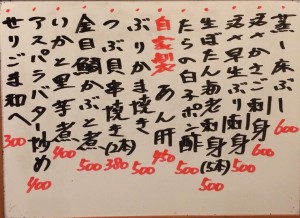 蒸し床ぶし 600
活かさご刺身 600
活早生ぶり刺身 500
生ぼたん海老刺(5本) 500
たらの白子ポン酢 500
自家製 あん肝 450
ぶりかま焼き 500
つぶ貝串焼き(2本) 380
金目鯛かぶと煮 500
いかと里芋煮 400
アスパラバター炒め 400
せりごま和へ 300